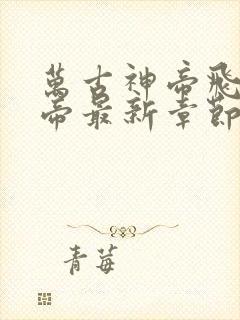 萬古神帝飛
帝最新章節
青莓